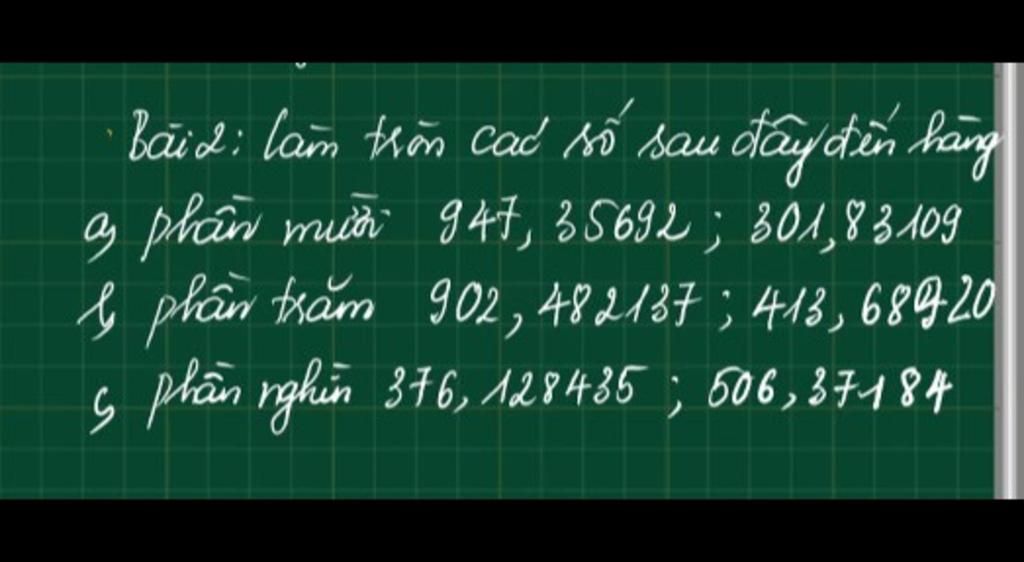 Bài 2: Làm tròn các số sau đây đến hàng
a, phần mười 947,35692 ; 301,83109
b, phần trăm 902,482137 ; 413,68920
c, phần nghìn 376,128435 ; 506,37184